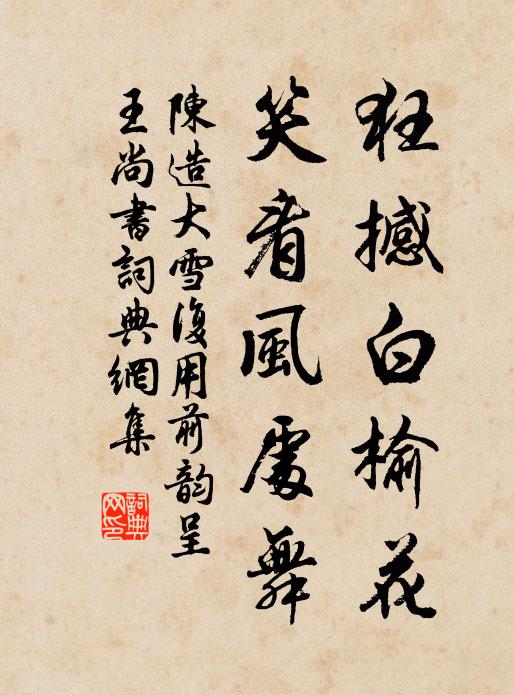 狂撼白榆花
笑看風處舞
陳造大雪復用前韵呈
王尚書詞典網集
詞典網印